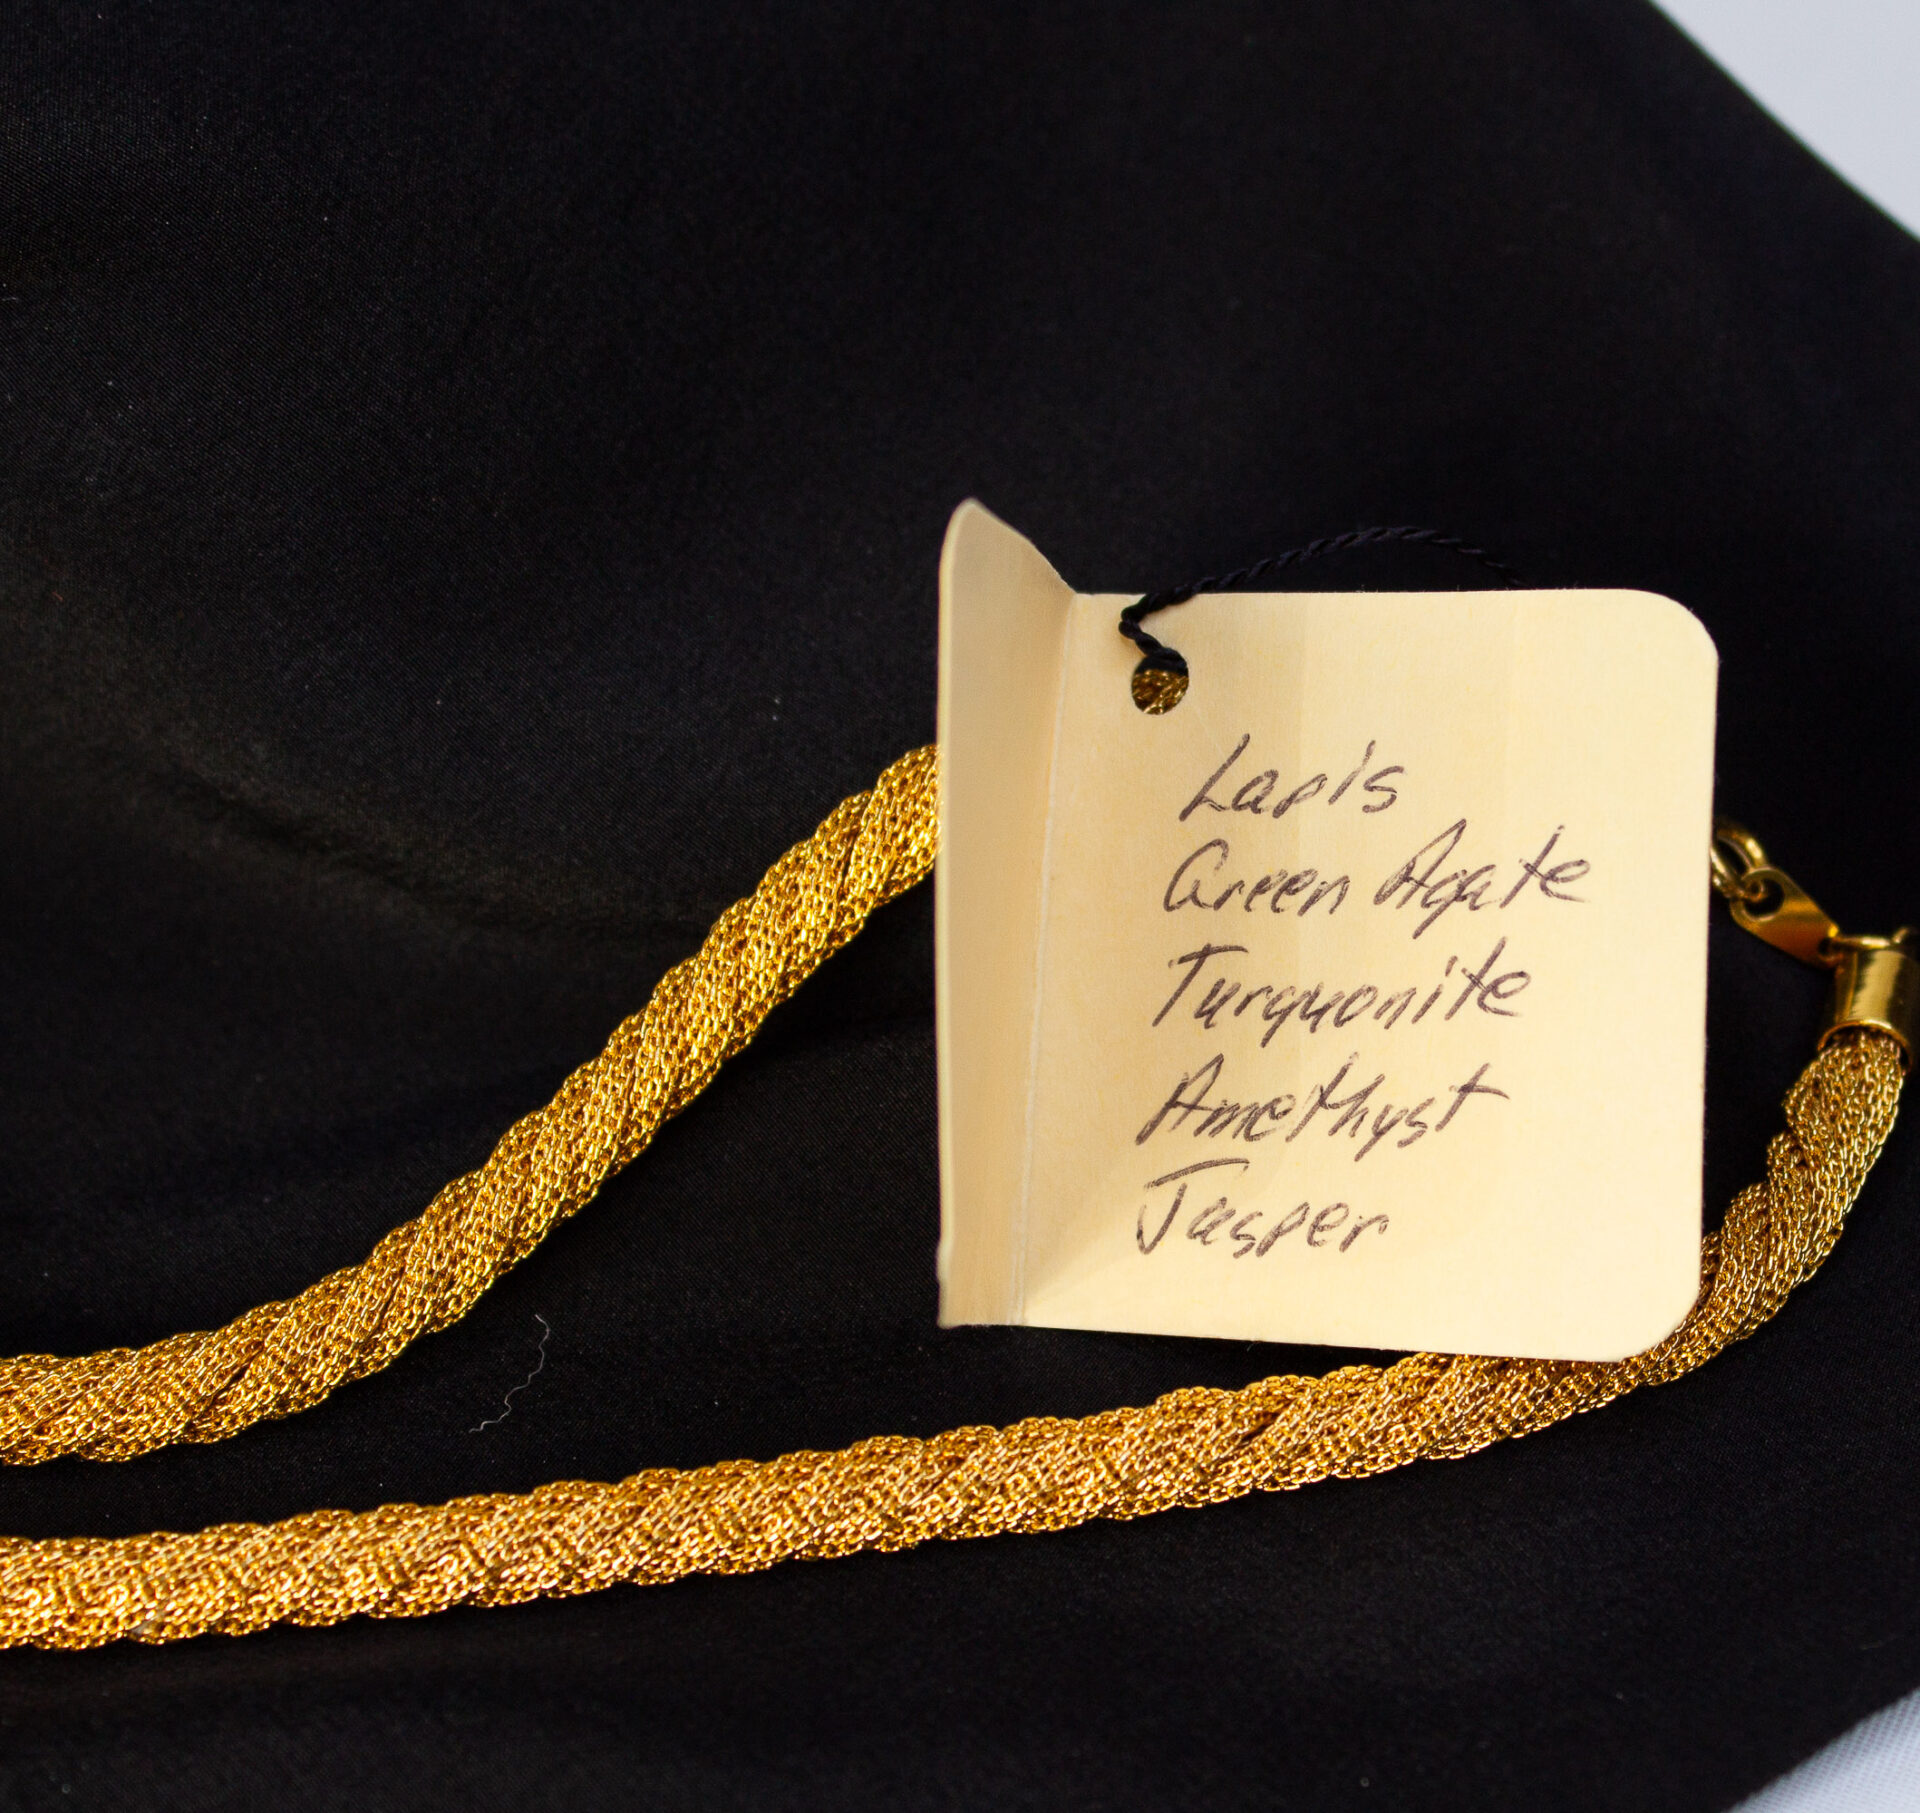 Lapis
Green Agate
Turquonite
Amethyst
Jasper